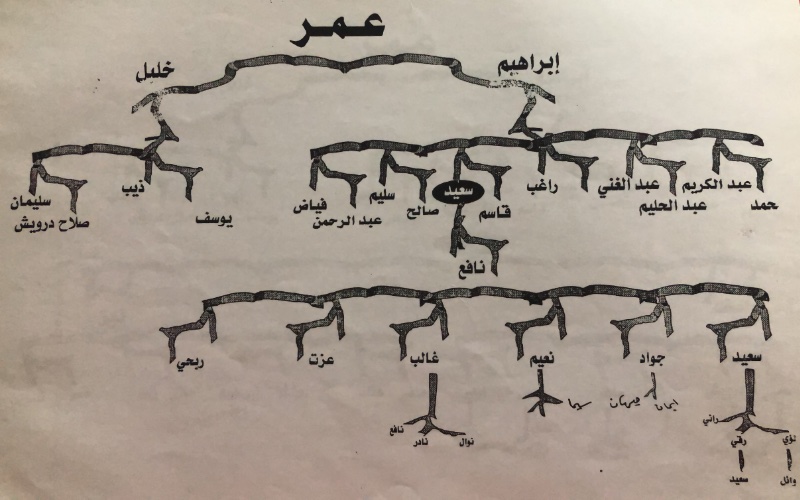 عمر
إبراهيم خليل
حمد عبد الكريم عبد الحليم عبد الغني راغب قاسم سعيد صالح سليم عبد الرحمن فياض يوسف ذيب صلاح درويش سليمان
نافع
سعيد جواد نعيم غالب عزت ربحي
ايمان سيما
راني نوال نافع
لؤي رقي نادر
وائل سعيد